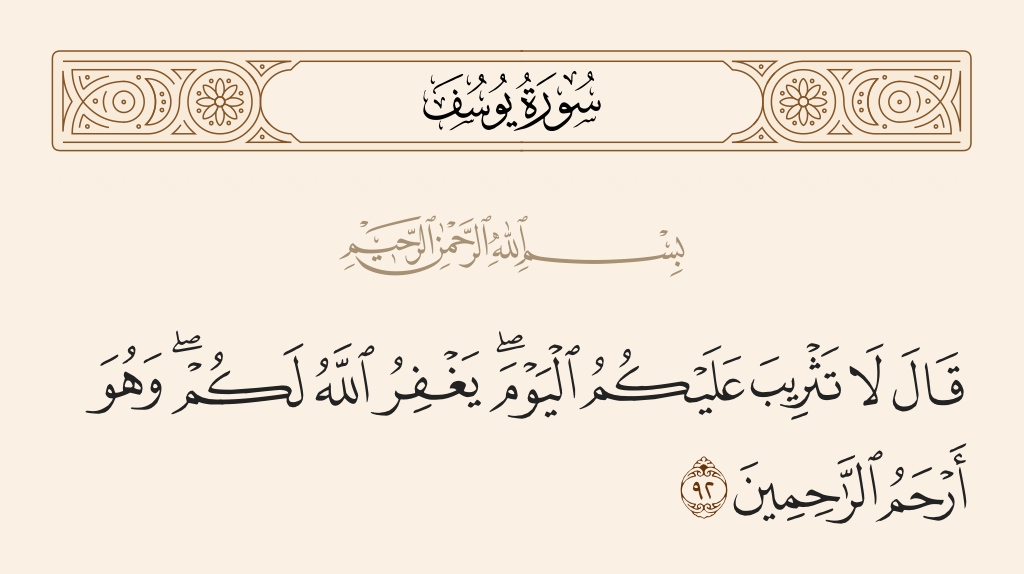 سُورَةُ يُوسُفَ
بِسْمِ ٱللَّهِ ٱلرَّحْمَٰنِ ٱلرَّحِيمِ
قَالَ لَا تَثْرِيبَ عَلَيْكُمُ ٱلْيَوْمَ ۖ يَغْفِرُ ٱللَّهُ لَكُمْ ۖ وَهُوَ
أَرْحَمُ ٱلرَّٰحِمِينَ ٩٢